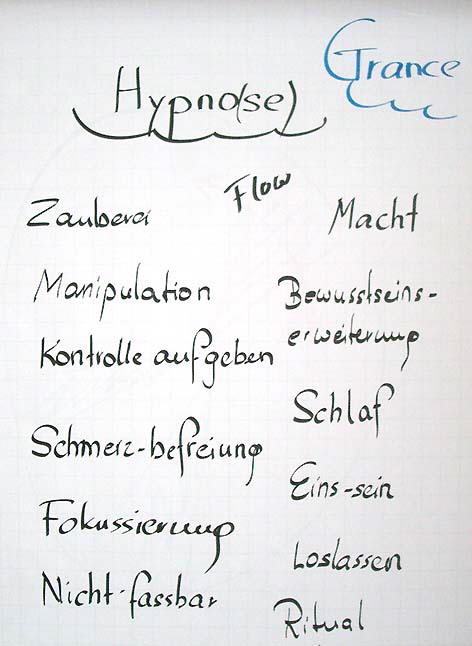 Trance
Hypno(se)
Flow
Zauberei
Macht
Manipulation
Bewusstseins-
erweiterung
Kontrolle aufgeben
Schlaf
Schmerz-befreiung
Eins-sein
Fokussierung
Loslassen
Nicht-fassbar
Ritual